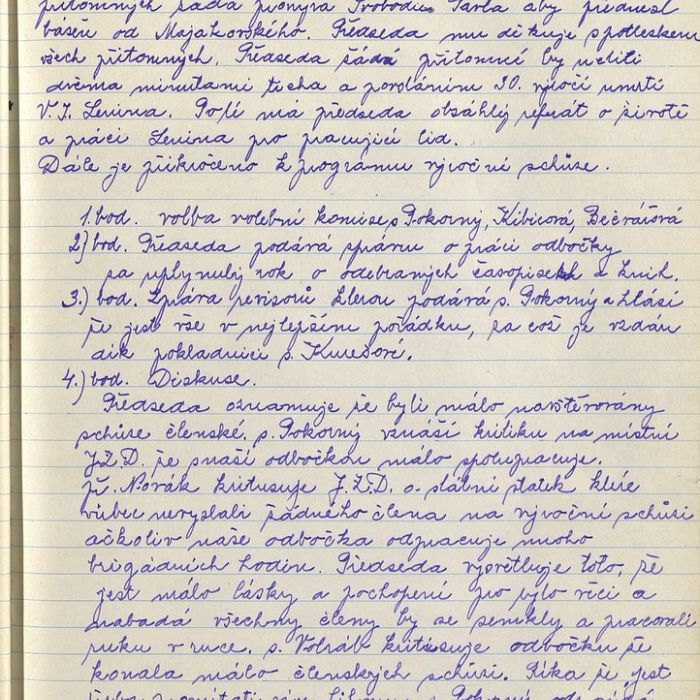 přítomných žádá pionýra Svobodu Karla aby přednesl
báseň od Majakovského. Předseda mu děkuje s potleskem
všech přítomných. Předseda žádá přítomné by uctili
dvěma minutami ticha a povstáním 30. výročí úmrtí
V. I. Lenina. Poté má předseda obsáhlý referát o životě
a práci Lenina pro pracující lid.
Dále je přikročeno k programu výroční schůze.
1. bod. volba volební komise s Pokorný, Kibicová, Bečvářová
2.) bod. Předseda podává zprávu o práci odbočky
za uplynulý rok o odebraných časopisech a knih.
3.) bod. Zpráva revisorů kterou podává s. Pokorný a hlásí
že jest vše v nejlepším pořádku, za což je vzdán
dík pokladnici s.
4.) bod. Diskuse.
Předseda oznamuje že byli málo navštěvovány
schůze členské. s. Pokorný vznáší kritiku na místní
J.Z.D. že s naší odbočkou málo spolupracuje.
př. Novák kritisuje J.Z.D. a státní statek kteří
vůbec nevyslali žádného člena na výroční schůzi
ačkoliv naše odbočka odpracuje mnoho
brigádních hodin. Předseda vysvětluje toto, že
jest málo lásky a pochopení pro tyto věci a
nabádá všechny členy by se semkly a pracovali
ruku v ruce. s. Volráb kritisuje odbočku že
konala málo členských schůzí. Říká že jest